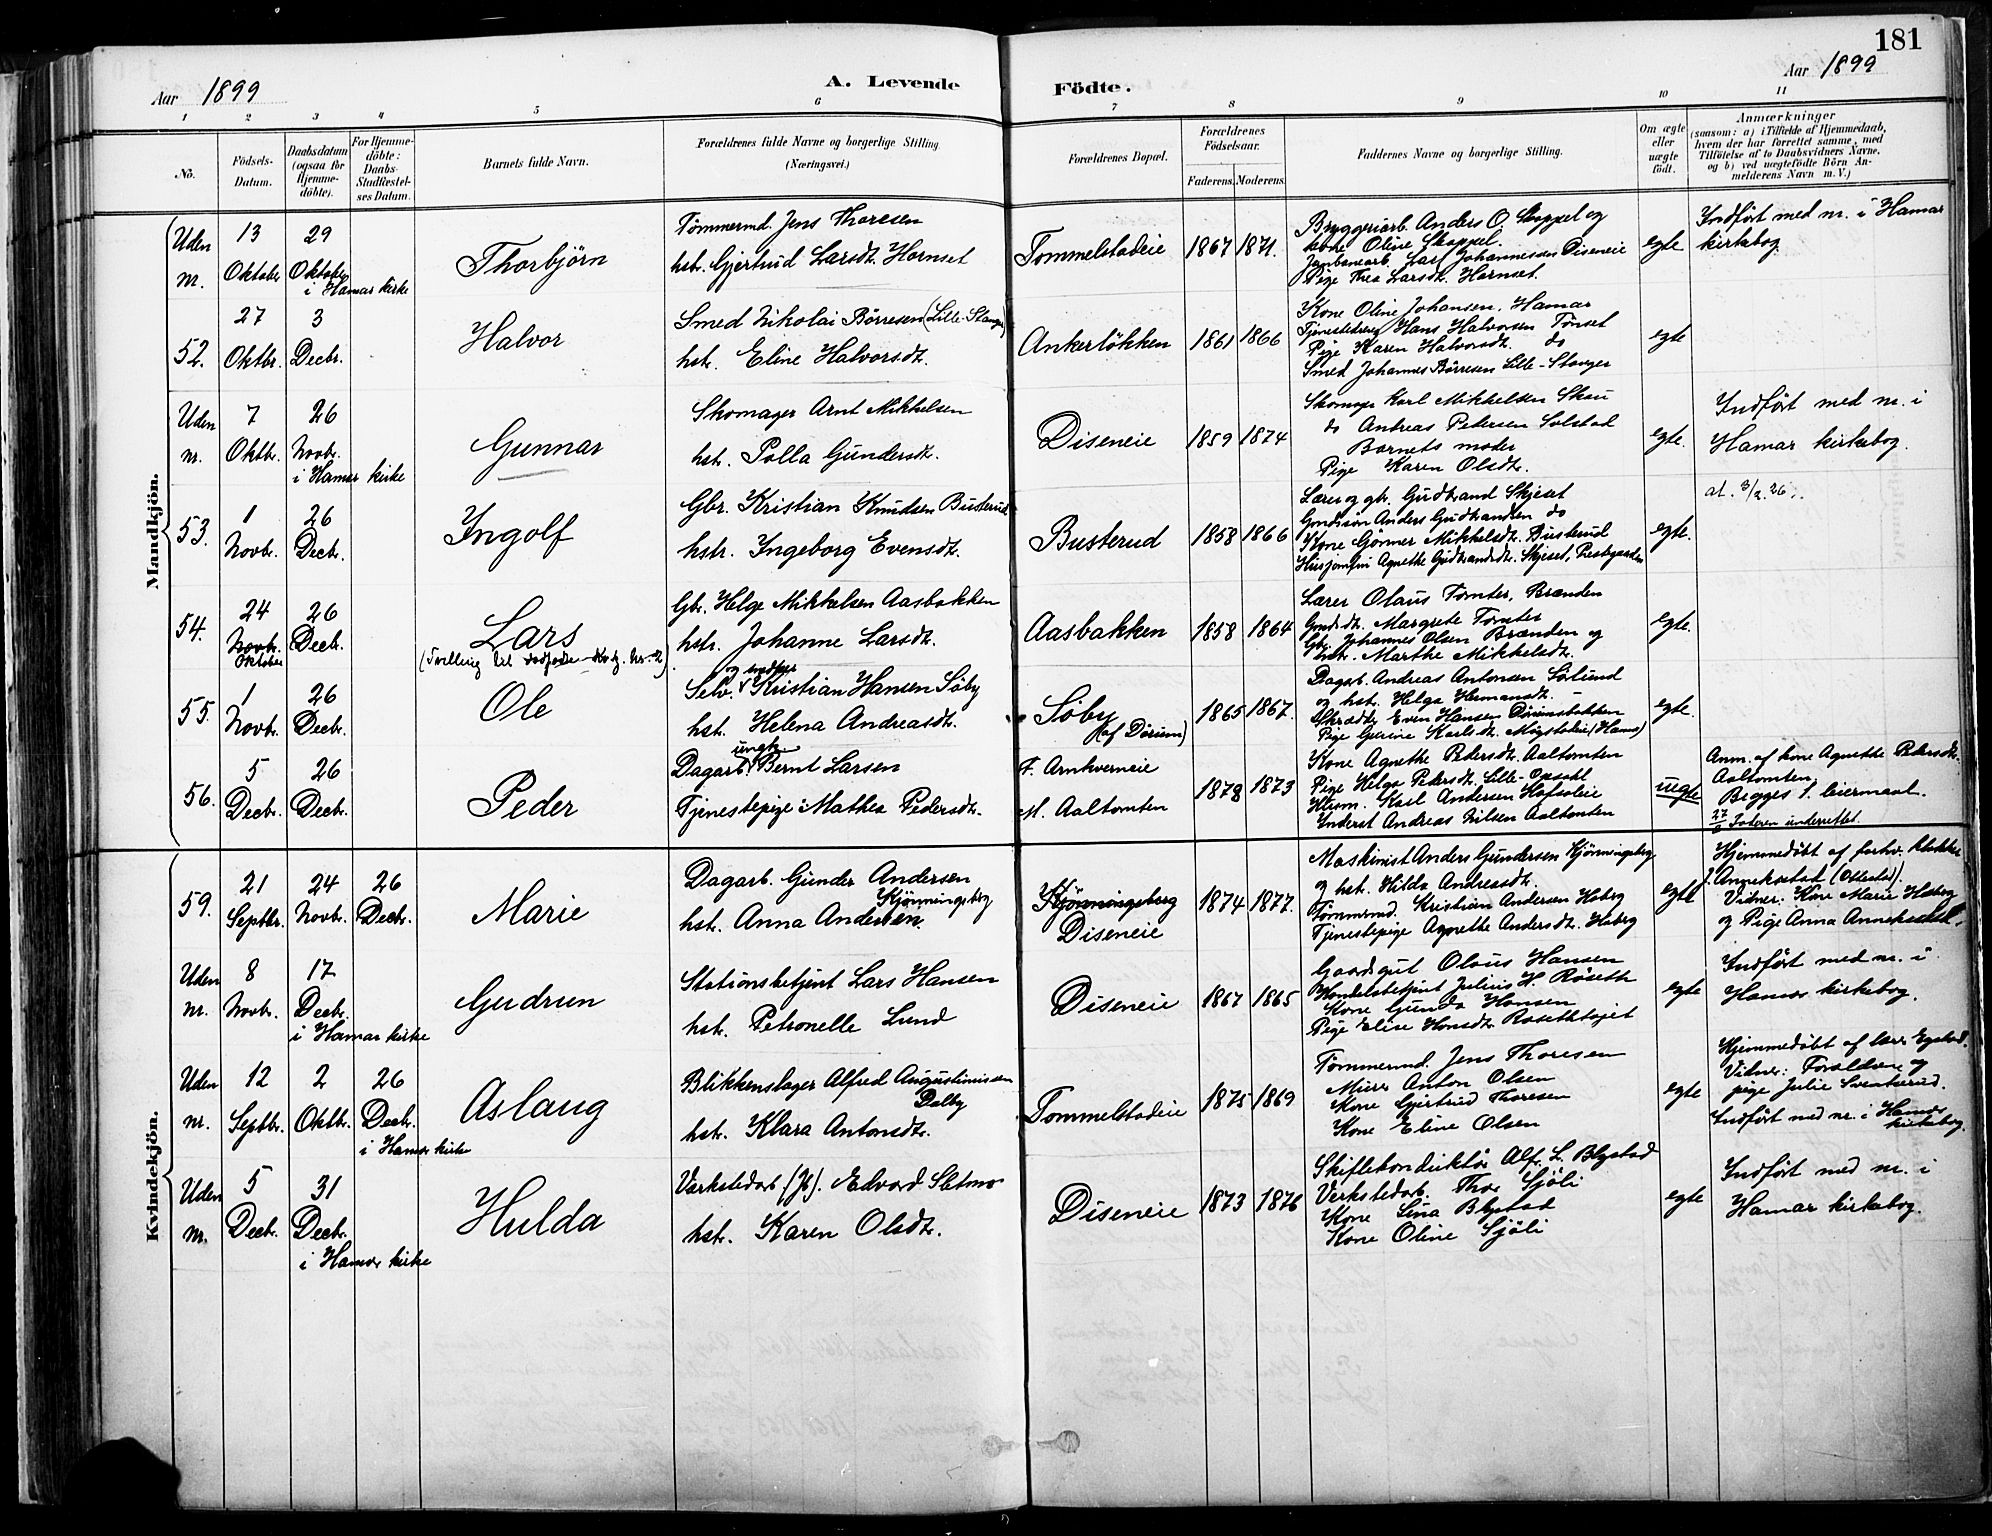 181
Aar 1899
A. Levende
Födte.
Aar 1899
1 2 3 4 5 6 7 8 9 10 11
No.
Födsels-Datum.
Daabsdatum (ogsaa for Hjemmedöbte).
For Hjemmedöbte: Daabs-Stadfæstelses Datum.
Barnets fulde Navn.
Forældrenes fulde Navne og borgerlige Stilling (Næringsvei.)
Forældrenes Bopæl.
Forældrenes Födselsaar.
Faderens. Moderens.
Faddernes Navne og borgerlige Stilling.
Om ægte eller uægte födt.
Anmærkninger
(saasom: a) i Tilfælde af Hjemmedaab, hvem der har forrettet samme, med Tilföielse af to Daabsvidners Navne. og b) ved uægtefödte Börn Anmelderens Navn m. V.)
Mandkjön.
Uden nr.
13 Oktober
29 Oktober i Hamar kirke
Thorbjörn
Tømmermd. Jens Thoresen
hstr. Gjertrud Larsdt. Hornset
Tommelstadeie
1867 1871.
Bryggeriarb. Anders O. Skappel og
kone Oline Skappel.
Jernbanearb. Lars Johannessen Diseneie
Pige Thea Larsdt. Hornset.
egte
Indført med nr. i Hamar
kirkebog.
52.
27 Oktbr.
3 Decbr.
Halvor
Smed Nikolai Børresen (Lille-Stange)
hstr. Eline Halvorsdt.
Ankerløkken
1861 1866
Kone Oline Johansen, Hamar
Tjenestedreng Hans Halvorsen Tønset
Pige Karen Halvorsdt. do
Smed Johannes Børresen Lille-Stange
egte
Uden nr.
7 Oktbr.
26 Novbr. i Hamar kirke
Gunnar
Skomager Arnt Mikkelsen
hstr. Polla Gundersdt.
Diseneie
1859 1874
Skomager Karl Mikkelsen Skau
do Andreas Petersen Solstad
Barnets moder
Pige Karen Olsdt.
egte.
Indført med nr. i
Hamar kirkebog.
53.
1 Novbr.
26 Decbr.
Ingolf
Gbr. Kristian Knudsen Busterud
hstr. Ingeborg Evensdt.
Busterud
1858 1866
Lærer og gbr. Gudbrand Skjeset
Gaardssøn Anders Gudbrandsen do
Kone Gønner Mikkelsdt. Busterud
Husjomfru Agnethe Gudbrandsdt. Skjeset, Prestgaarden
egte.
at. 3/2.26.
54.
24 Novbr.
26 Decbr.
Lars
Gbr. Helge Mikkelsen Aasbakken
hstr. Johanne Larsdt.
Aasbakken
1858 1864
Lærer Olaus Tomter, Brænden
Gmdsdt. Margrete Tomter
Gbr. Johannes Olsen Brænden og
hstr. Marthe Mikkelsdt.
egte.
55.
Oktober
1 Novbr.
26 Decbr.
(Tvilling til dødfødte Kvkj. nr. 2)
Ole
Selv. og snedker Kristian Hansen Søby
hst. Helena Andreasdt.
Søby (af Dørum)
1865 1867.
Dagarb. Andreas Antonsen Sølund
og hst. Helga Hermansdt.
Skrædder Even Hansen Dørumsbakken
Pige Gurine Karlsdt. Mogstadeie (Hamar)
egte.
56.
5 Decbr.
26 Decbr.
Peder
Dagarb. ungk. Bernt Larsen
Tjenestepige Mathea Pedersdt.
F. Arnkverneie
M. Aaltomten
1878 1873
Kone Agnethe Petersdt. Aaltomten
Pige Helga Petersdt. Lille-Opsahl
Husm. Karl Andersen Hofsoleie
Inderst Andreas Nilsen Aaltomten
uegte
Anm. af kone Agnethe Petersdt.
Aaltomten.
Begges 1. leiermaal.
27/3 Faderen underrettet.
Kvindekjön.
59.
21 Septbr.
24 Novbr.
26 Decbr.
Marie
Dagarb. Gunder Andersen Kjønningsberg
hst. Anna Andersen.
Kjønningsberg
Diseneie
1874 1877.
Maskinist Anders Gundersen Kjønningsberg
og hst. Hilda Andreasdt.
Tømmermd. Kristian Andersen Haberg
Tjenestepige Agnethe Andersdt. Haberg
egte
Hjemmedøbt af forhv. Klokker
J. Annekstad (Ottestad).
Vidner: Kone Marie Haberg
og Pige Anna Annekstad.
Uden nr.
8 Novbr.
17 Decbr. i Hamar kirke
Gudrun
Stationsbetjent Lars Hansen
hst. Petronelle Lund
Diseneie
1867 1865
Gaardgut Olaus Hansen
Handelsbetjent Julius H. Røseth
Kone Gunda Hansen
Pige Elise Hansdt. Rosethtajet
egte
Indført med nr. i
Hamar kirkebog.
Uden nr.
12 Septbr.
2 Oktbr.
26 Decbr. i Hamar kirke
Aslaug
Blikkenslager Alfred Augustinussen Dalby
hstr. Klara Antonsdt.
Tommelstadeie
1875 1869
Tømmermd. Jens Thoresen
Murer Anton Olsen
Kone Gjertrud Thoresen
Kone Eline Olsen
egte
Hjemmedøbt af lærer Egstad.
Vidner: Forældrene og
pige Julie Sventkerud.
Indført med nr. i Hamar
kirkebog.
Uden nr.
5 Decbr.
31 Decbr. i Hamar kirke
Hulda
Værkstedarb. (Jb). Edvard Sletmo
hstr. Karen Olsdt.
Diseneie
1873 1876
Skiftekonduktør Alf. L. Blystad
Verkstedarb. Thor Sjøli
Kone Lina Blystad
Kone Oline Sjøli
egte
Indført med nr. i
Hamar kirkebog.